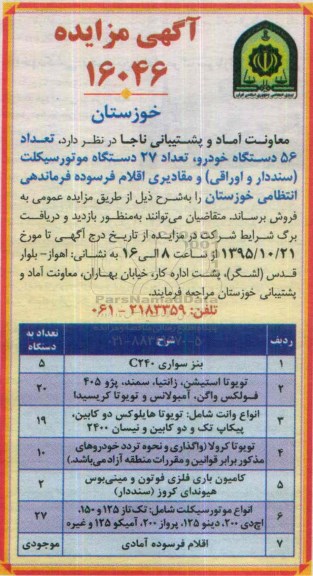 آگهی مزایده
۱۶۰۴۶
خوزستان
معاونت آماد و پشتیبانی ناجا در نظر دارد، تعداد
۵۶ دستگاه خودرو، تعداد ۲۷ دستگاه موتورسیکلت
(سنددار و اوراقی) و مقادیری اقلام فرسوده فرماندهی
انتظامی خوزستان را به‌شرح ذیل از طریق مزایده عمومی به
فروش برساند. متقاضیان می‌توانند به‌منظور بازدید و دریافت
برگ شرایط شرکت در مزایده از تاریخ درج آگهی تا مورخ
۱۳۹۵/۱۰/۲۱ از ساعت ۸ الی ۱۶ به نشانی: اهواز- بلوار
قدس (لشگر)، پشت اداره کار، خیابان بهاران، معاونت آماد و
پشتیبانی خوزستان مراجعه فرمایند.
ParsNamadData
تلفن: ۲۱۸۳۳۵۹ - ۰۶۱
ردیف شرح تعداد به دستگاه
۱ بنز سواری C۲۴۰ ۵
۲ تویوتا استیشن، زانتیا، سمند، پژو ۴۰۵ ۲۰
فولکس واگن، آمبولانس و تویوتا کریسیدا
۳ انواع وانت شامل: تویوتا هایلوکس دو کابین، ۱۹
پیکاپ تک و دو کابین و نیسان ۲۴۰۰
۴ تویوتا کرولا (واگذاری و نحوه تردد خودروهای ۱۰
مذکور برابر قوانین و مقررات منطقه آزاد می‌باشد.)
۵ کامیون باری فلزی فوتون و مینی‌بوس ۲
هیوندای کروز (سنددار)
۶ انواع موتورسیکلت شامل: تک‌تاز ۱۲۵ و ۱۵۰، ۲۷
اچ‌دی ۲۰۰، دینو ۱۲۵، پرواز ۲۰۰، آمیکو ۱۲۵ و غیره
۷ اقلام فرسوده آمادی موجودی